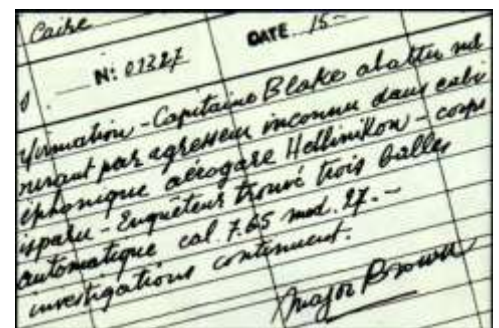 Caire
N: 01327
DATE 15-
firmation - Capitaine Blake abattu
par agresseur inconnu dans cabi
éphonique aérogare Hellinikon - corps
isparu - Enquêteur trouvé trois balles
automatique cal. 7.65 mod. 27. -
investigations continuent.
Major Brown